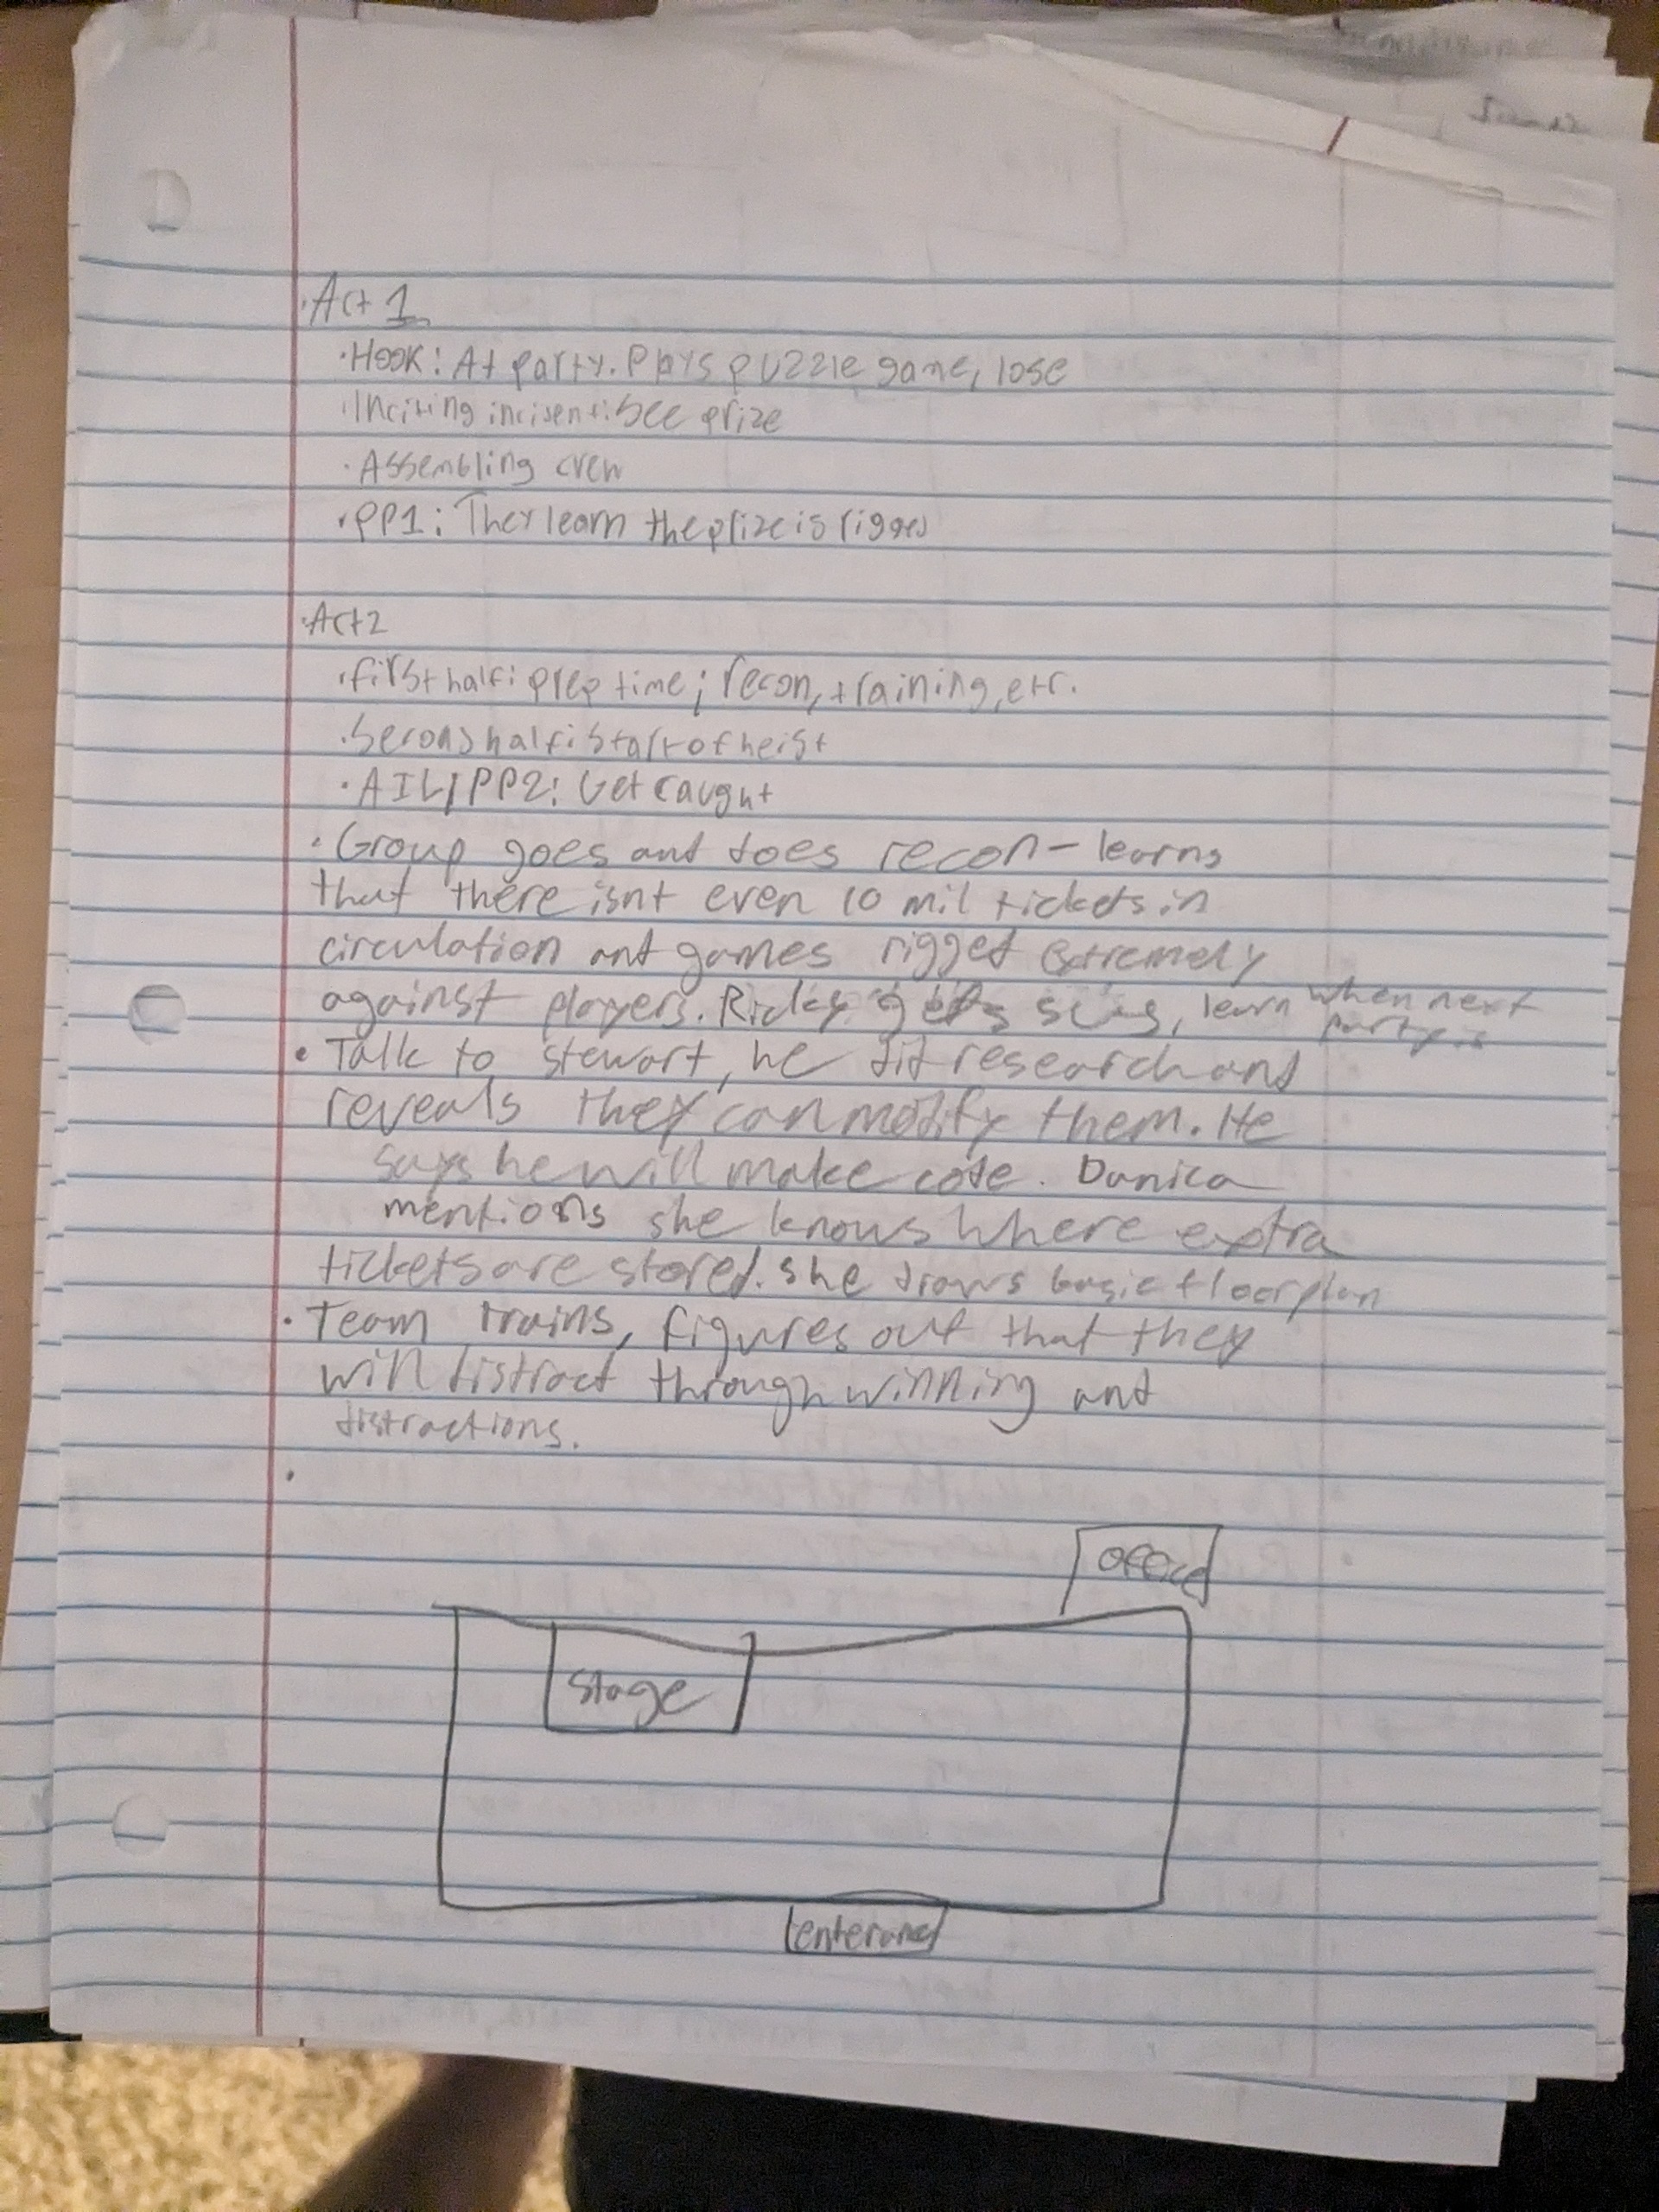 · Act 1
· Hook: At party. Plays puzzle game, lose
· Inciting incident: See prize
· Assembling crew
· PP1: They learn the prize is rigged
· Act 2
· first half: prep time; recon, training, etc.
· Second half: start of heist
· AIL/PP2: Get caught
· Group goes and does recon - learns
that there isnt even 10 mil tickets in
circulation and games rigged extremely
against players. Ricky gets, learn when next
party is
· Talk to stewart, he did research and
reveals they can modify them. He
says he will make code. Danica
mentions she knows where extra
tickets are stored. she draws basic floorplan
· Team trains, figures out that they
will distract through winning and
distractions.
·
office
stage
enterance